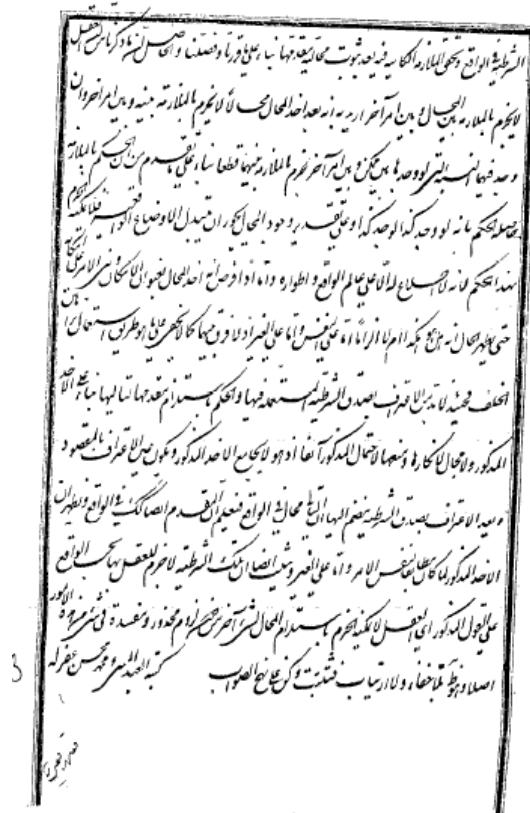 الشرطية في الواقع وتحقق الملازمة الكائنة فيه بعد ثبوت محالية مقدمها بناء على ما قررنا وفصلنا والحاصل ان ما ذكرنا من العقل
لا يجزم بالملازمة بين المحال وبين امر آخر اريد به انه بعد اخذ المحال محالا لا يجزم بالملازمة بينه وبين امر آخر وان
وجد فيهما النسبة التي لو وجدها بين ممكن وبين امر آخر يجزم بالملازمة بينهما قطعا بناء على ما تقدم من ان الحكم بالملازمة
حاصله الحكم بانه لو وجد كذا لوجد كذا وعلى تقدير وجود المحال يجوز ان تتبدل الاوضاع الواقعية فلا يمكنه الجزم
بهذا الحكم لانه لا اطلاع له الا على عالم الواقع واطواره واما اذا فرض اخذ المحال بعنوان الامكان
حتى يظهر الحال انه اما على النفس واما على الغير اذ لا فرق بينهما كما لا يخفى على ما هو طريق استعمال
الخلف فحينئذ لا بد من الاعتراف بصدق الشرطية المستعملة فيها والحكم باستلزام مقدمها لتاليها بناء على الاخذ
المذكور ولا مجال لانكارها ومنعها لاحتمال المذكور آنفا اذ هو لا يجامع الاخذ المذكور ويكون عين الاعتراف بالمقصود
وبعد الاعتراف بصدق الشرطية ينضم اليها ان تاليها محال في الواقع فنعلم ان المقدم ايضا كذلك في الواقع ويظهر ان
الاخذ المذكور لما كان مطابقا لنفس الامر واما على الغير وثبت ايضا ان تلك الشرطية لا جزم للعقل بها بحسب الواقع
على القول المذكور اي العقل لا يمكنه الجزم باستلزام المحال شيء آخر من غير لزوم محذور ومفسدة في شيء من هذه الامور
اصلا وهو ظ بلا خفاء ولا ارتياب فتثبت وكن على نهج الصواب كتبه العبد محمد محسن غفر له
3